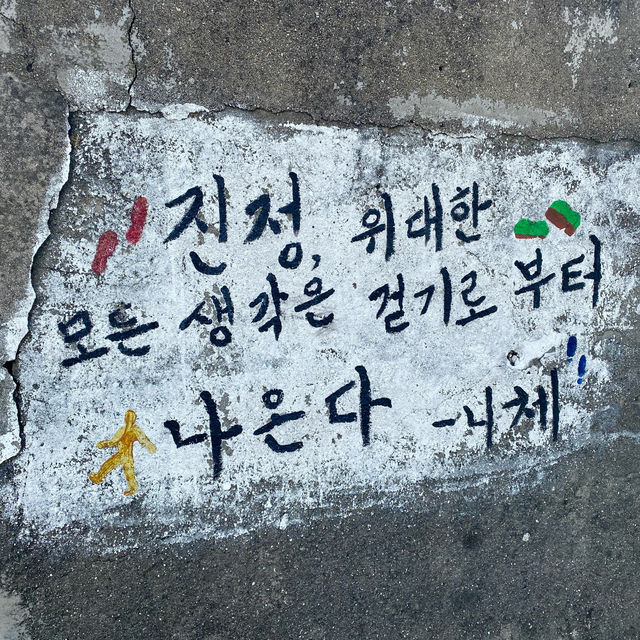 "진정, 위대한
모든 생각은 걷기로 부터
나온다 -니체"